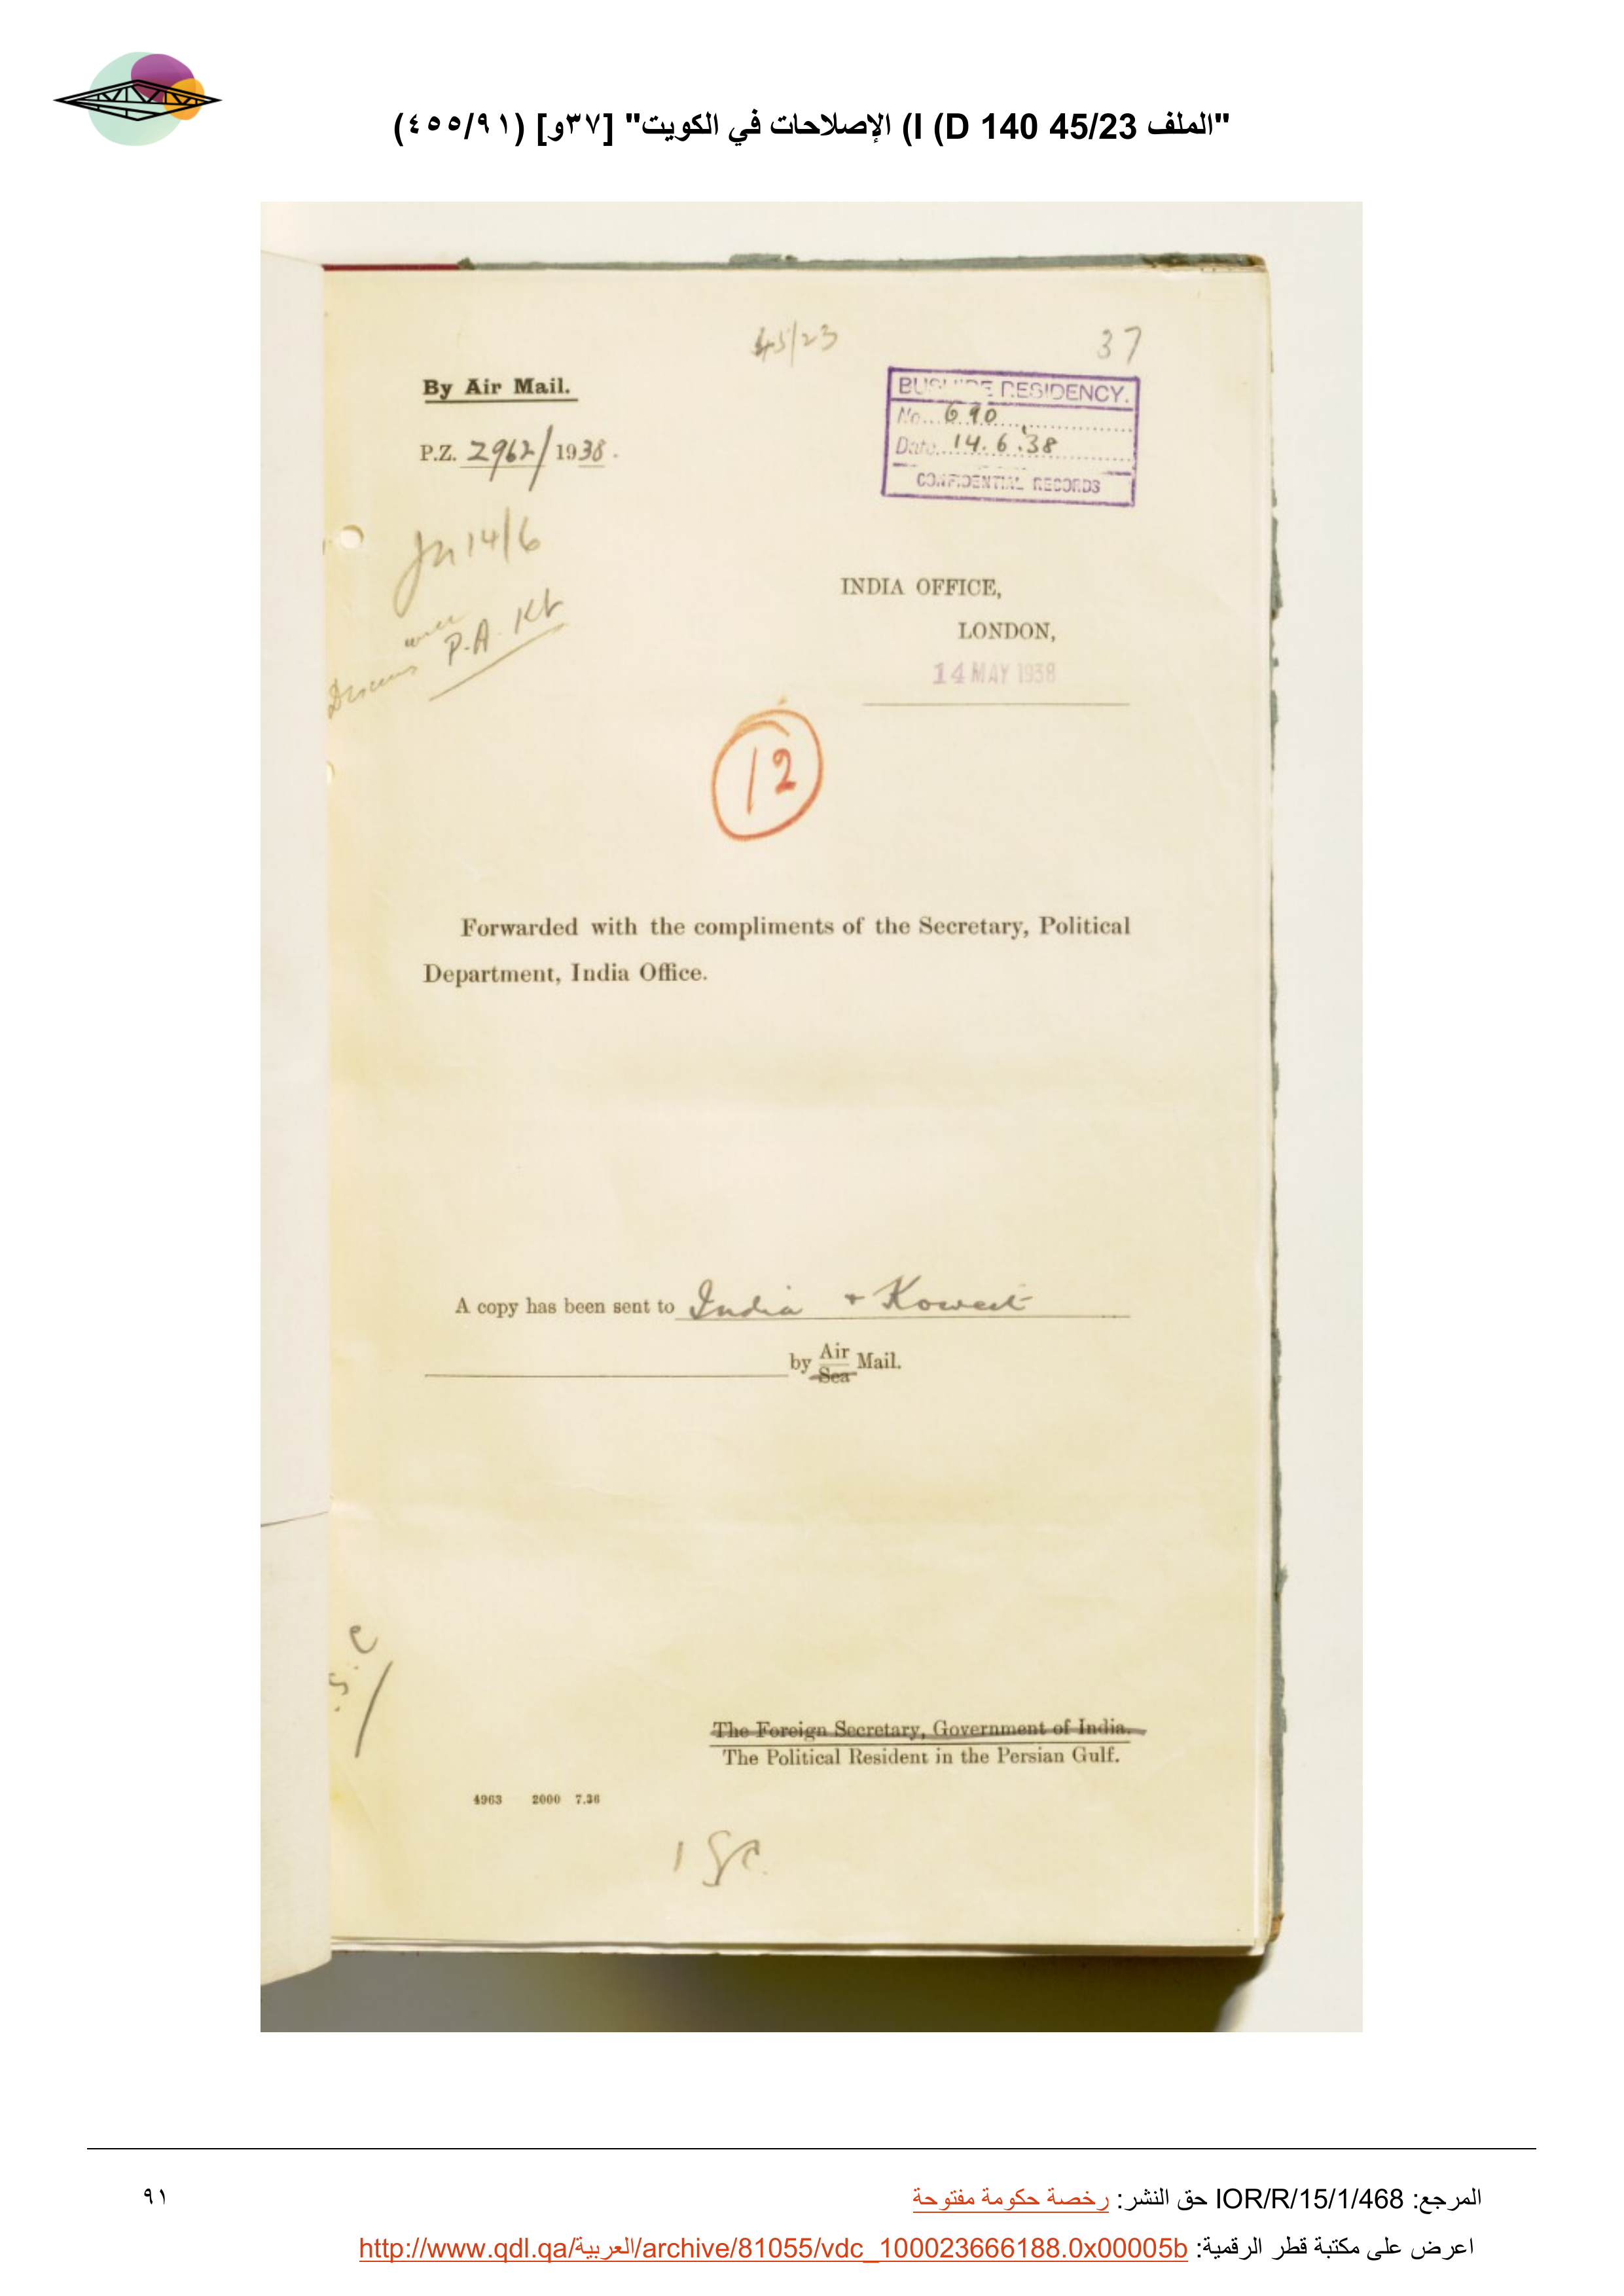 "الملف 45/23 I (D 140) الإصلاحات في الكويت" [٣٧و] (٤٥٥/٩١)
45/23
37
By Air Mail.
BUSHIRE RESIDENCY.
No. 690
Date 14.6.38
CONFIDENTIAL RECORDS
P.Z. 2962/1938.
14/6
Discuss with
P.A. Kt
INDIA OFFICE,
LONDON,
14 MAY 1938
12
Forwarded with the compliments of the Secretary, Political
Department, India Office.
A copy has been sent to India + Koweit
by Air Mail.
Sea
The Foreign Secretary, Government of India.
The Political Resident in the Persian Gulf.
4963 2000 7.36
المرجع: IOR/R/15/1/468 حق النشر: رخصة حكومة مفتوحة
٩١
اعرض على مكتبة قطر الرقمية: http://www.qdl.qa/العربية/archive/81055/vdc_100023666188.0x00005b